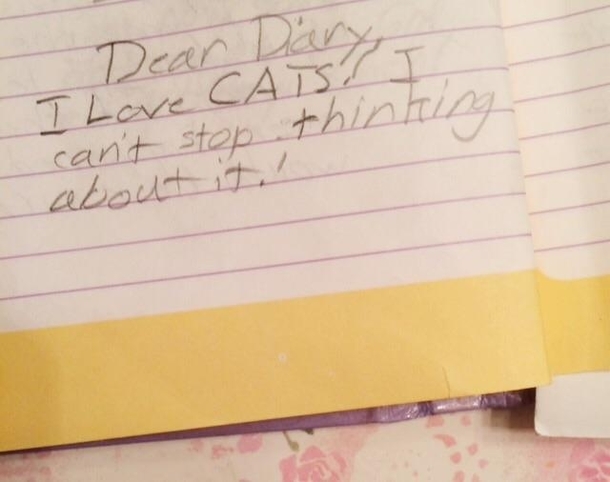 Dear Diary,
I Love CATS! I
can't stop thinking
about it!